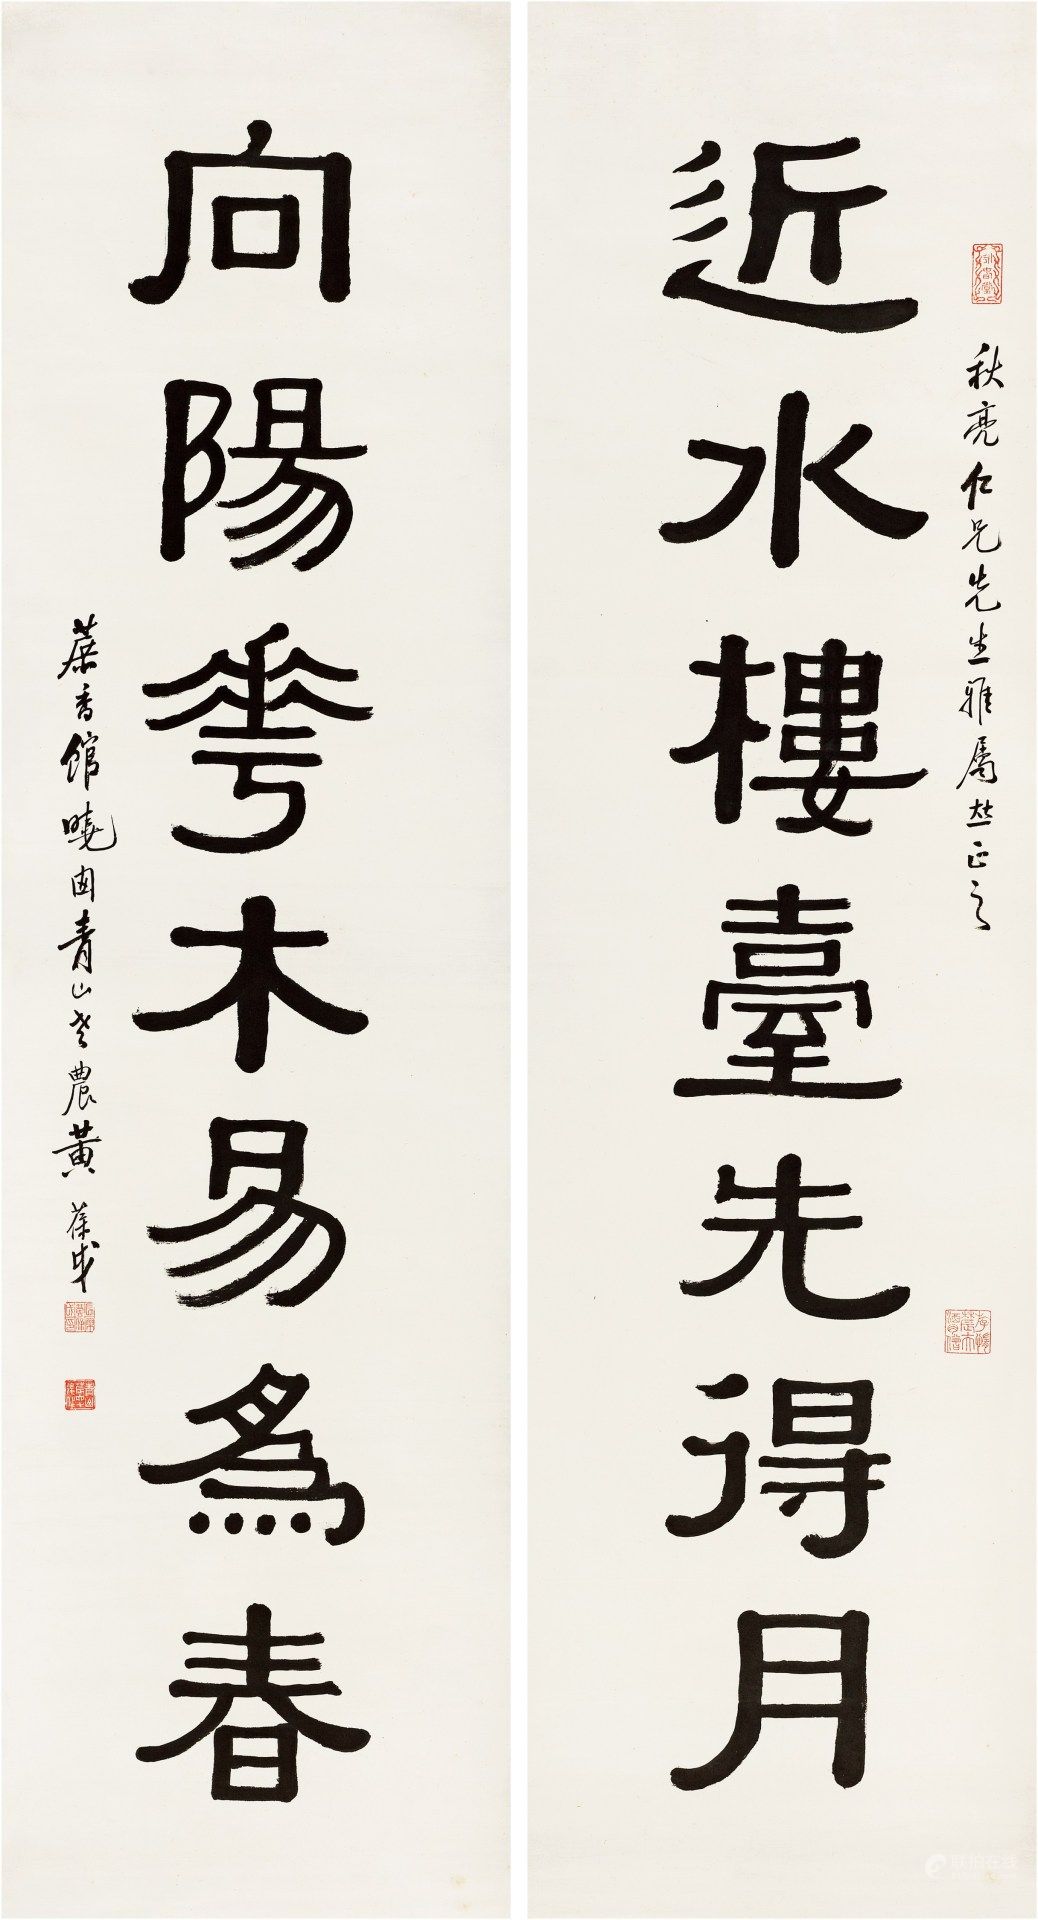 秋亮仁兄先生雅屬並正之
近水樓臺先得月
向陽花木易為春
蔗香館曉因青山老農黃葆戉